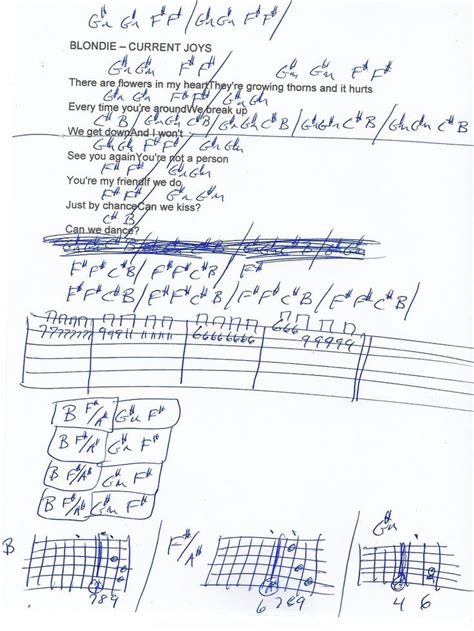 G#m G#m F# F# / G#m G#m F# F# /
BLONDIE – CURRENT JOYS
G#m G#m F# F# / G#m G#m F# F#
There are flowers in my heartThey're growing thorns and it hurts
G#m G#m F# F# / G#m G#m
Every time you're aroundWe break up
C# B / G#m G#m C# B / G#m G#m C# B / G#m G#m C# B / G#m G#m C# B
We get downAnd I won't
G#m G#m F# F# / G#m G#m
See you againYou're not a person
F# F# / G#m G#m
You're my friendIf we do
F# F# / G#m G#m
Just by chanceCan we kiss?
C# B
Can we dance?
F# F# C# B / F# F# C# B / F#
F# F# C# B / F# F# C# B / F# F# C# B / F# F# C# B /
7777777 99911 66666666 666 99999
B F#/A# G#m F#
B F#/A# G#m F#
B F#/A# G#m F#
B F#/A# G#m F#
B F#/A# G#m
789 6 789 4 6